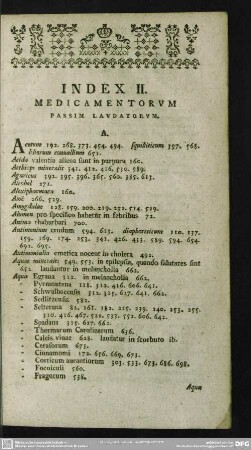 INDEX II.
MEDICAMENTORVM
PASSIM LAVDATORVM.
A.
Acetum 192. 268. 373. 454. 494. squilliticum 397. 568.
lithargyri camulliana 651.
Acida valentia aliena sunt in purpura 160.
Aethiops mineralis 341. 412. 416. 530. 589.
Agaricus 392. 395. 396. 365. 560. 385. 613.
Alcohol 271.
Alexipharmaca 160.
Aloë 266. 529.
Amygdalae 128. 159. 200. 219. 272. 514. 519.
Ahomen pro specifico habetur in febribus 72.
Anima rhabarbari 700.
Antimonium crudum 594. 613. diaphoreticum 110. 137.
159. 169. 174. 253. 341. 426. 431. 589. 594. 654.
692. 695.
Antimonialia emetica nocent in cholera 492.
Aquae minerales 549. 553. in epilepsia, quando salutares sint
652. laudantur in melancholia 662.
Aqua Egrana 112. in melancholia 662.
- Pyrmontana 128. 512. 416. 606. 641.
- Schwalbacensis 512. 325. 627. 641. 662.
- Sedlizensis 582.
- Selterana 82. 165. 182. 215. 239. 240. 253. 255.
310. 416. 467. 522. 537. 552. 606. 642.
- Spadana 325. 627. 662.
- Thermarum Carolinarum 636.
- Calcis vivae 628. laudatur in scorbuto ib.
- Cerasorum 673.
- Cinnamomi 172. 656. 669. 673.
- Corticum aurantiorum 303. 533. 673. 686. 698.
- Foeniculi 560.
- Fragorum 538.
Aqua